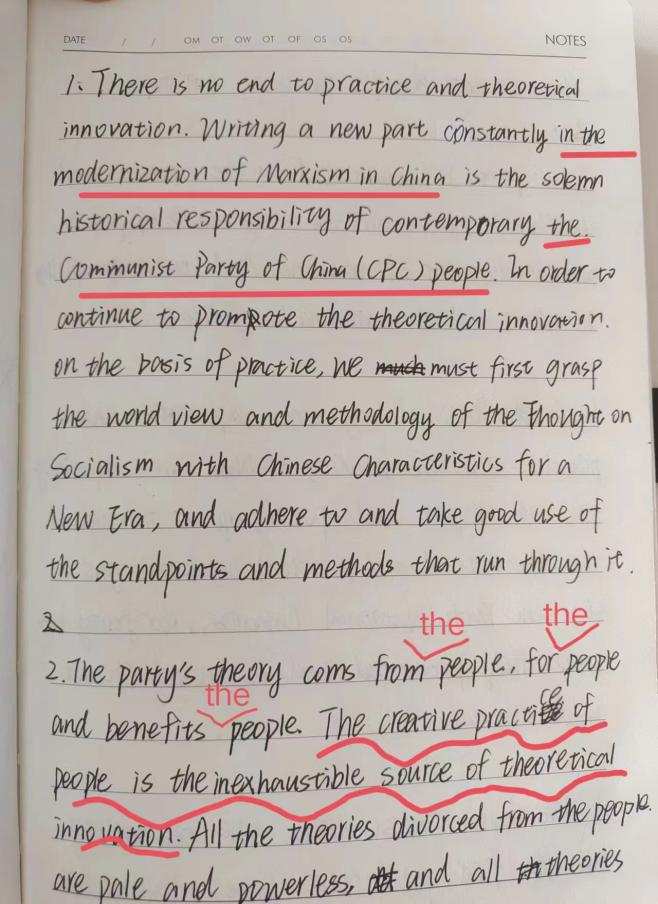 DATE / / OM OT OW OT OF OS OS NOTES
1. There is no end to practice and theoretical
innovation. Writing a new part constantly in the
modernization of Marxism in China is the solemn
historical responsibility of contemporary the
Communist Party of China (CPC) people. In order to
continue to prompote the theoretical innovation.
on the basis of practice, we much must first grasp
the world view and methodology of the Thought on
Socialism with Chinese Characteristics for a
New Era, and adhere to and take good use of
the standpoints and methods that run through it.
2
the the
2. The party's theory coms from people, for people
the
and benefits people. The creative practice of
people is the inexhaustible source of theoretical
innovation. All the theories divorced from the people.
are pale and powerless, and all theories